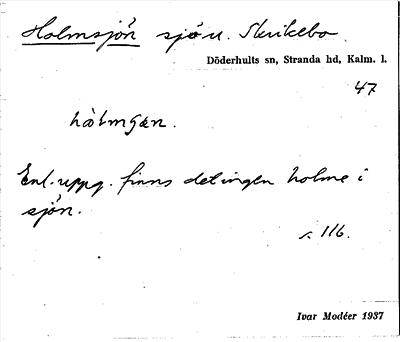 Holmsjön sjö u. Skrikebo
Döderhults sn, Stranda hd, Kalm. l.
47
hòlmgæn.
Enl. uppg. finns det ingen holme i
sjön.
s. 116.
Ivar Modéer 1937